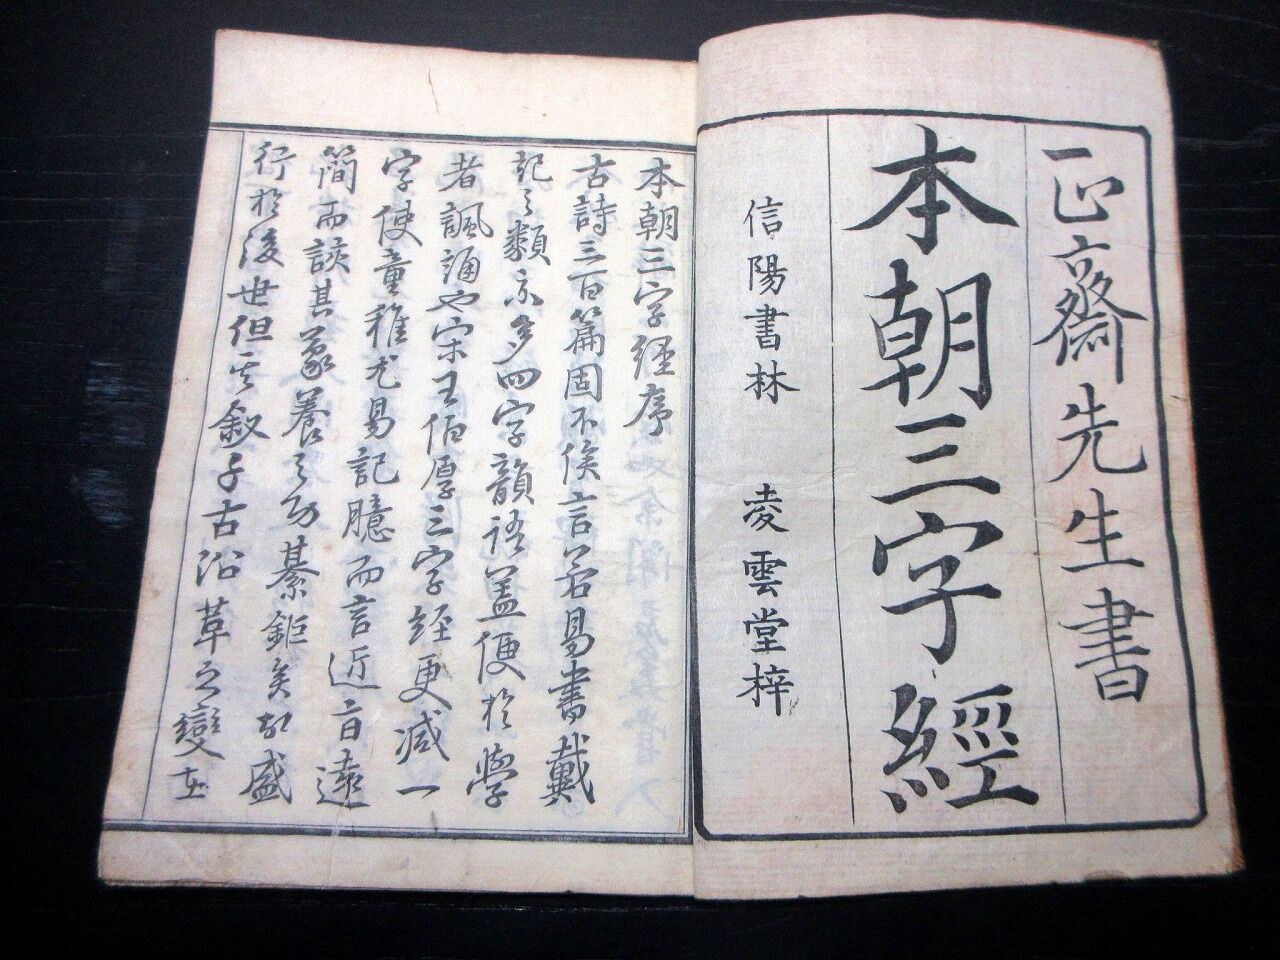 正齋先生書
本朝三字經
信陽書林 凌雲堂梓
本朝三字經序
古詩三百篇固不俟言若易書戴
記之類亦多四字韻語蓋便於學
者諷誦也宋王伯厚三字經更減一
字使童稚尤易記臆而言近旨遠
簡而該其蒙養之功綦鉅矣故盛
行於後世但其叙千古沿革之變在